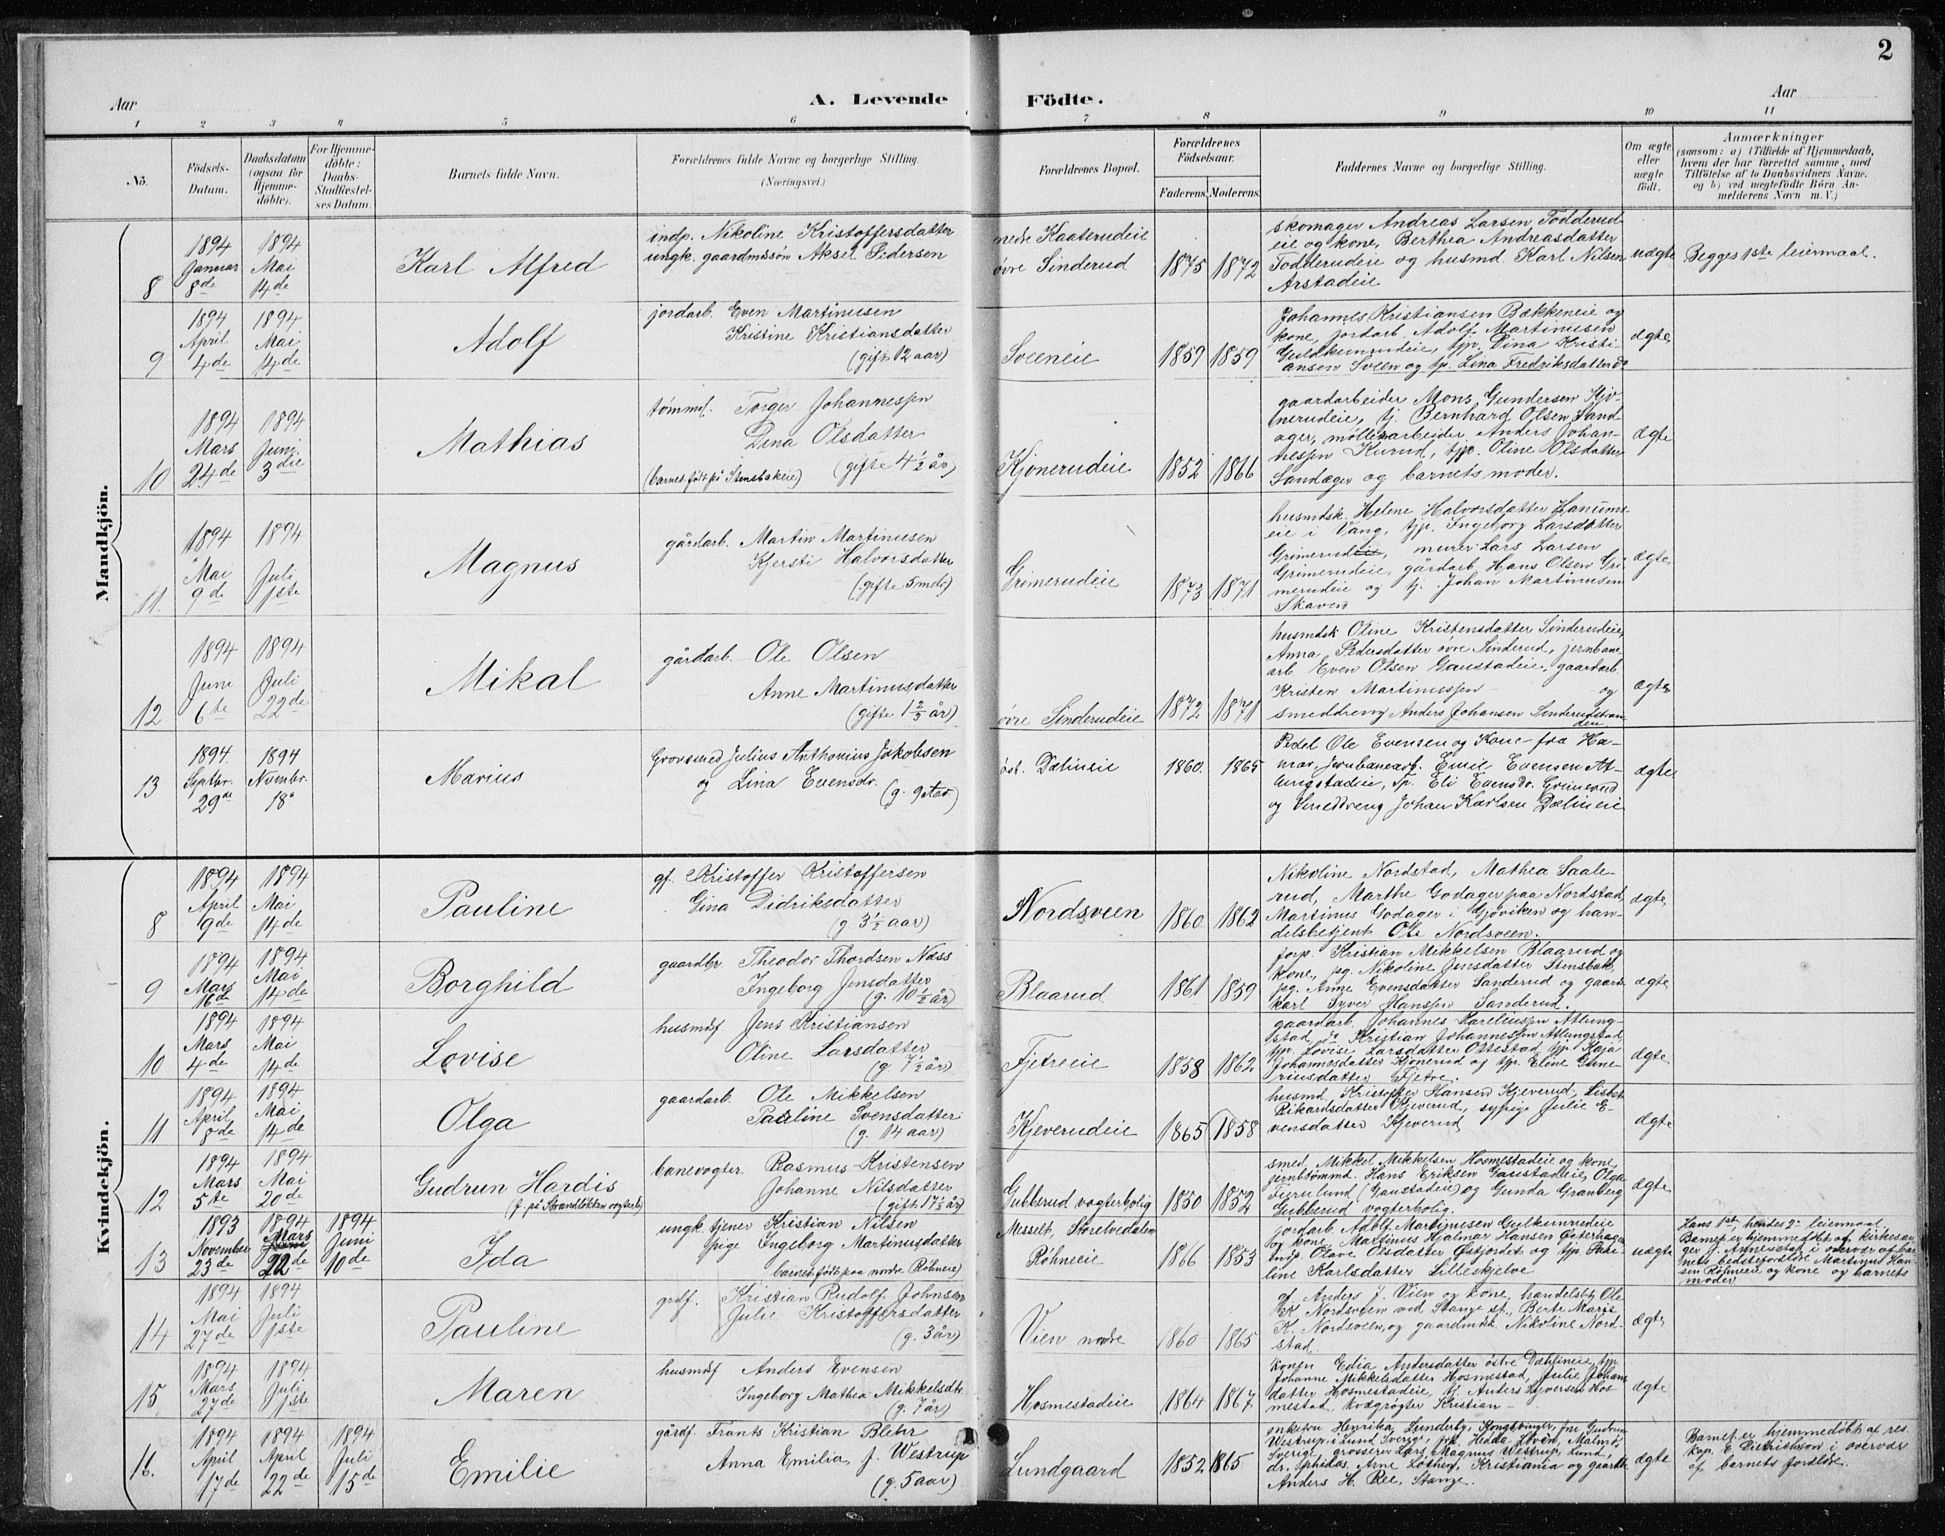 2
Aar
A. Levende Födte.
Aar
1 2 3 4 5 6 7 8 9 10 11
No.
Födsels-
Datum.
Daabsdatum
(ogsaa for
Hjemme-
döbte).
For Hjemme-
döbte:
Daabs-
Stadfæstel-
ses Datum.
Barnets fulde Navn.
Forældrenes fulde Navne og borgerlige Stilling.
(Næringsvei)
Forældrenes Bopæl.
Forældrenes
Födselsaar.
Faderens. Moderens.
Faddernes Navne og borgerlige Stilling.
Om ægte
eller
uægte
födt.
Anmærkninger
(saasom: a) i Tilfælde af Hjemmedaab,
hvem der har forrettet samme, med
Tilföielse af to Daabsvidners Navne.
og b) ved uægtefödte Börn An-
melderens Navn m.V.)
Mandkjön.
8
1894
Januar
8de
1894
Mai
14de
Karl Alfred
indp. Nikoline Kristoffersdatter
ungk. gaardmssön Aksel Pedersen
nedre Kaaterudeie
øvre Sinderud
1875 1872
skomager Andreas Larsen Todderud-
eie og kone, Berthea Andreasdatter
Todderudeie og husmd. Karl Nilsen
Arstadeie
uægte
Begges 1ste leiermaal.
9
1894
April
4de
1894
Mai
14de
Adolf
jordarb. Even Martinusen
Kristine Kristiansdatter
(gift 12 aar)
Sveeneie
1859 1859
Johannes Kristiansen Bækkeneie og
kone, jordarb Adolf Martinusen
Gulkunrudeie, tjp. Dina Kristi
ansen Sveen og tp. Lina Fredriksdatter do
ægte
10
1894
Mars
24de
1894
Juni
3die
Mathias
tømmd. Torger Johannessen
Dina Olsdatter
(barnet født på Stensbakeie) (gifte 4½ år)
Kjönerudeie
1852 1866
gaardarbeider Mons Gundersen Kjö-
nerudeie, tj. Bernhard Olsen Sand-
ager, møllearbeider Anders Johan-
nessen Kurud, tjp. Oline Olsdatter
Sandager og barnets moder.
ægte
11.
1894
Mai
9de
1894
Juli
1ste
Magnus
gårdarb. Martin Martinusen
Kjersti Halvorsdatter
(gifte 5 mdr)
Grimerudeie
1873 1871
husmdsk. Helene Halvorsdatter Hanums-
eie i Vang, tjp. Ingeborg Larsdatter
Grimerudeie, murer Lars Larsen
Grimerudeie, gårdarb Hans Olsen Gri-
merudeie og tj. Johan Martinusen
Skaven
ægte
12
1894
Juni
6te
1894
Juli
22de
Mikal
gårdarb. Ole Olsen
Anne Martinusdatter
(gifte 1⅔ år)
øvre Sinderudeie
1872 1871
husmdsk Oline Kristensdatter Sinderudeie,
Anna Pedersdatter øvre Sinderud, jernbane
arb Even Olsen Gaustadeie, gaardarb
Kristen Martinussen og
smeddreng Anders Johansen Sinderudstran
den
ægte
13
1894.
Septbr.
29de
1894
Novembr.
18de
Marius
Grovsmed Julius Anthonius Jakobsen
og Lina Evensdr.
(g. 9 Aar)
øst. Dælineie
1860. 1865
Pedel Ole Evensen og Kone fra Ha-
mar, Jernbanearb. Emil Evensen At-
lungstadeie, Tp. Eli Evensdr. Grimerud
og Smeddreng Johan Karlsen Dælineie
ægte
Kvindekjön.
8
1894
April
9de
1894
Mai
14de
Pauline
gf. Kristoffer Kristoffersen
Gina Didriksdatter
(g 3½ aar)
Nordsveen
1860 1862
Nikoline Nordstad, Mathea Saale-
rud, Marthe Godager paa Nordstad,
Martinus Godager i Gjöviken og han-
delsbetjent Ole Nordsveen.
ægte
9
1894
Mars
16de
1894
Mai
14de
Borghild
gaardbr Theodor Thordsen Næss
Ingeborg Jensdatter
(g. 10½ år)
Blaarud
1861 1859
forp. Kristian Mikkelsen Blaarud og
kone, pg. Nikoline Jensdatter Stensbak,
pg. Anne Evensdatter Sanderud og gaards-
karl Syver Hanssen Sanderud.
ægte
10
1894
Mars
4de
1894
Mai
14de
Lovise
husmdf Jens Kristiansen
Oline Larsdatter
(g 7½ år)
Fjetreeie
1858 1862
gaardarb. Johannes Kareliussen Atlung-
stad, do Kristian Johannessen Atlungstad,
tjp. Lovise Larsdatter Ottestad, tjp. Kaja
Johannesdatter Kjönerud og tjp. Eline
riusdatter Fjetre.
ægte
11
1894
April
8de
1894
Mai
14de
Olga
gaardarb. Ole Mikkelsen
Pauline Svensdatter
(g. 14 aar)
Kjeverudeie
1865 1858
husmd, Kristoffer Hansen Kjeverud, Lisbet
Rikardsdatter Kjeverud, sypige Julie E-
vensdatter Kjeverud
ægte
12
1894
Mars
5te
1894
Mai
20de
Gudrun Hardis
(f. på Strandløkken vogterb)
banevogter Rasmus Kristensen
Johanne Nilsdatter
(gift 17½ år)
Gubberud vogterbolig
1850 1852
smed Mikkel Mikkelsen Hosmestadeie og kone,
jernbtømmd. Hans Eriksen Gaustadeie, Olga
Furulund (Gaustadeie) og Gunda Granberg
Gubberud vogterbolig.
ægte
13
1893
November
23de
1894
Mars
22de
1894
Juni
10de
Ida
ungk tjener Kristian Nilsen
pige Ingeborg Martinusdatter
barnet født paa nordre Röhneeie)
Messelt, Storelvedalen
Röhneeie
1866 1853
jordarb Adolf Martinusen Gulkunrudeie
og kone, Martinus Hjalmar Hansen Österhagen
indp Olave Olsdatter Östjordet og tjp. Pau-
line Karlsdatter Lilleskjelve
uægte
Hans 1ste, hendes 2de leiermaal
Barnet er hjemmedøbt af kirkesan-
ger J. Annerstad i overvær af bar
nets bedsteforældre Martinus Han-
sen Röhneeie og kone og barnets
moder
14
1894
Mai
27de
1894
Juli
1ste
Pauline
grdf. Kristian Rudolf Johnsen
Julie Kristoffersdatter
(g. 3 år)
Vien nordre
1860 1865
gf Anders J. Vien og kone, handelsbt Ole
K Nordsveen ved Stange st., Berte Maris
K. Nordsveen, og gaardmdt. Nikoline Nord-
stad.
ægte
15
1894
Mars
27de
1894
Juli
1ste
Maren
husmdf Anders Evensen
Ingeborg Mathea Mikkelsdtr
(g. 7 år)
Hosmestadeie
1864 1867
konen Edia Andersdatter östre Dæhlineie, tjp
Johanne Mikkelsdatter Hosmestad, Julie Johans
datter Hosmestadeie, tj. Anders Syversen Hos
mestad, kvægrøgter Kristian —
ægte
16.
1894
April
17de
1894
April
22de
1894
Juli
15de
Emilie
gårdf. Frants Kristian Blehr
Anna Emilia, f. Westrup
(g. 5 aar)
Lundgaard
1852 1865
enkefru Henrika Lunderby, Kongsvinger, frk Gudrun
Westrup, i Lund Sverige, frk. Hedda Malmö
Sverige, grosserer Lars Magnus Westrup, Lund,
dr. philos. Arne Løchen, Kristiania og gaardbr
Anders H. Ree, Stange.
ægte
Barnet er hjemmedøbt af res.
kap. E Dietrichson i overvær
af barnets forældre.